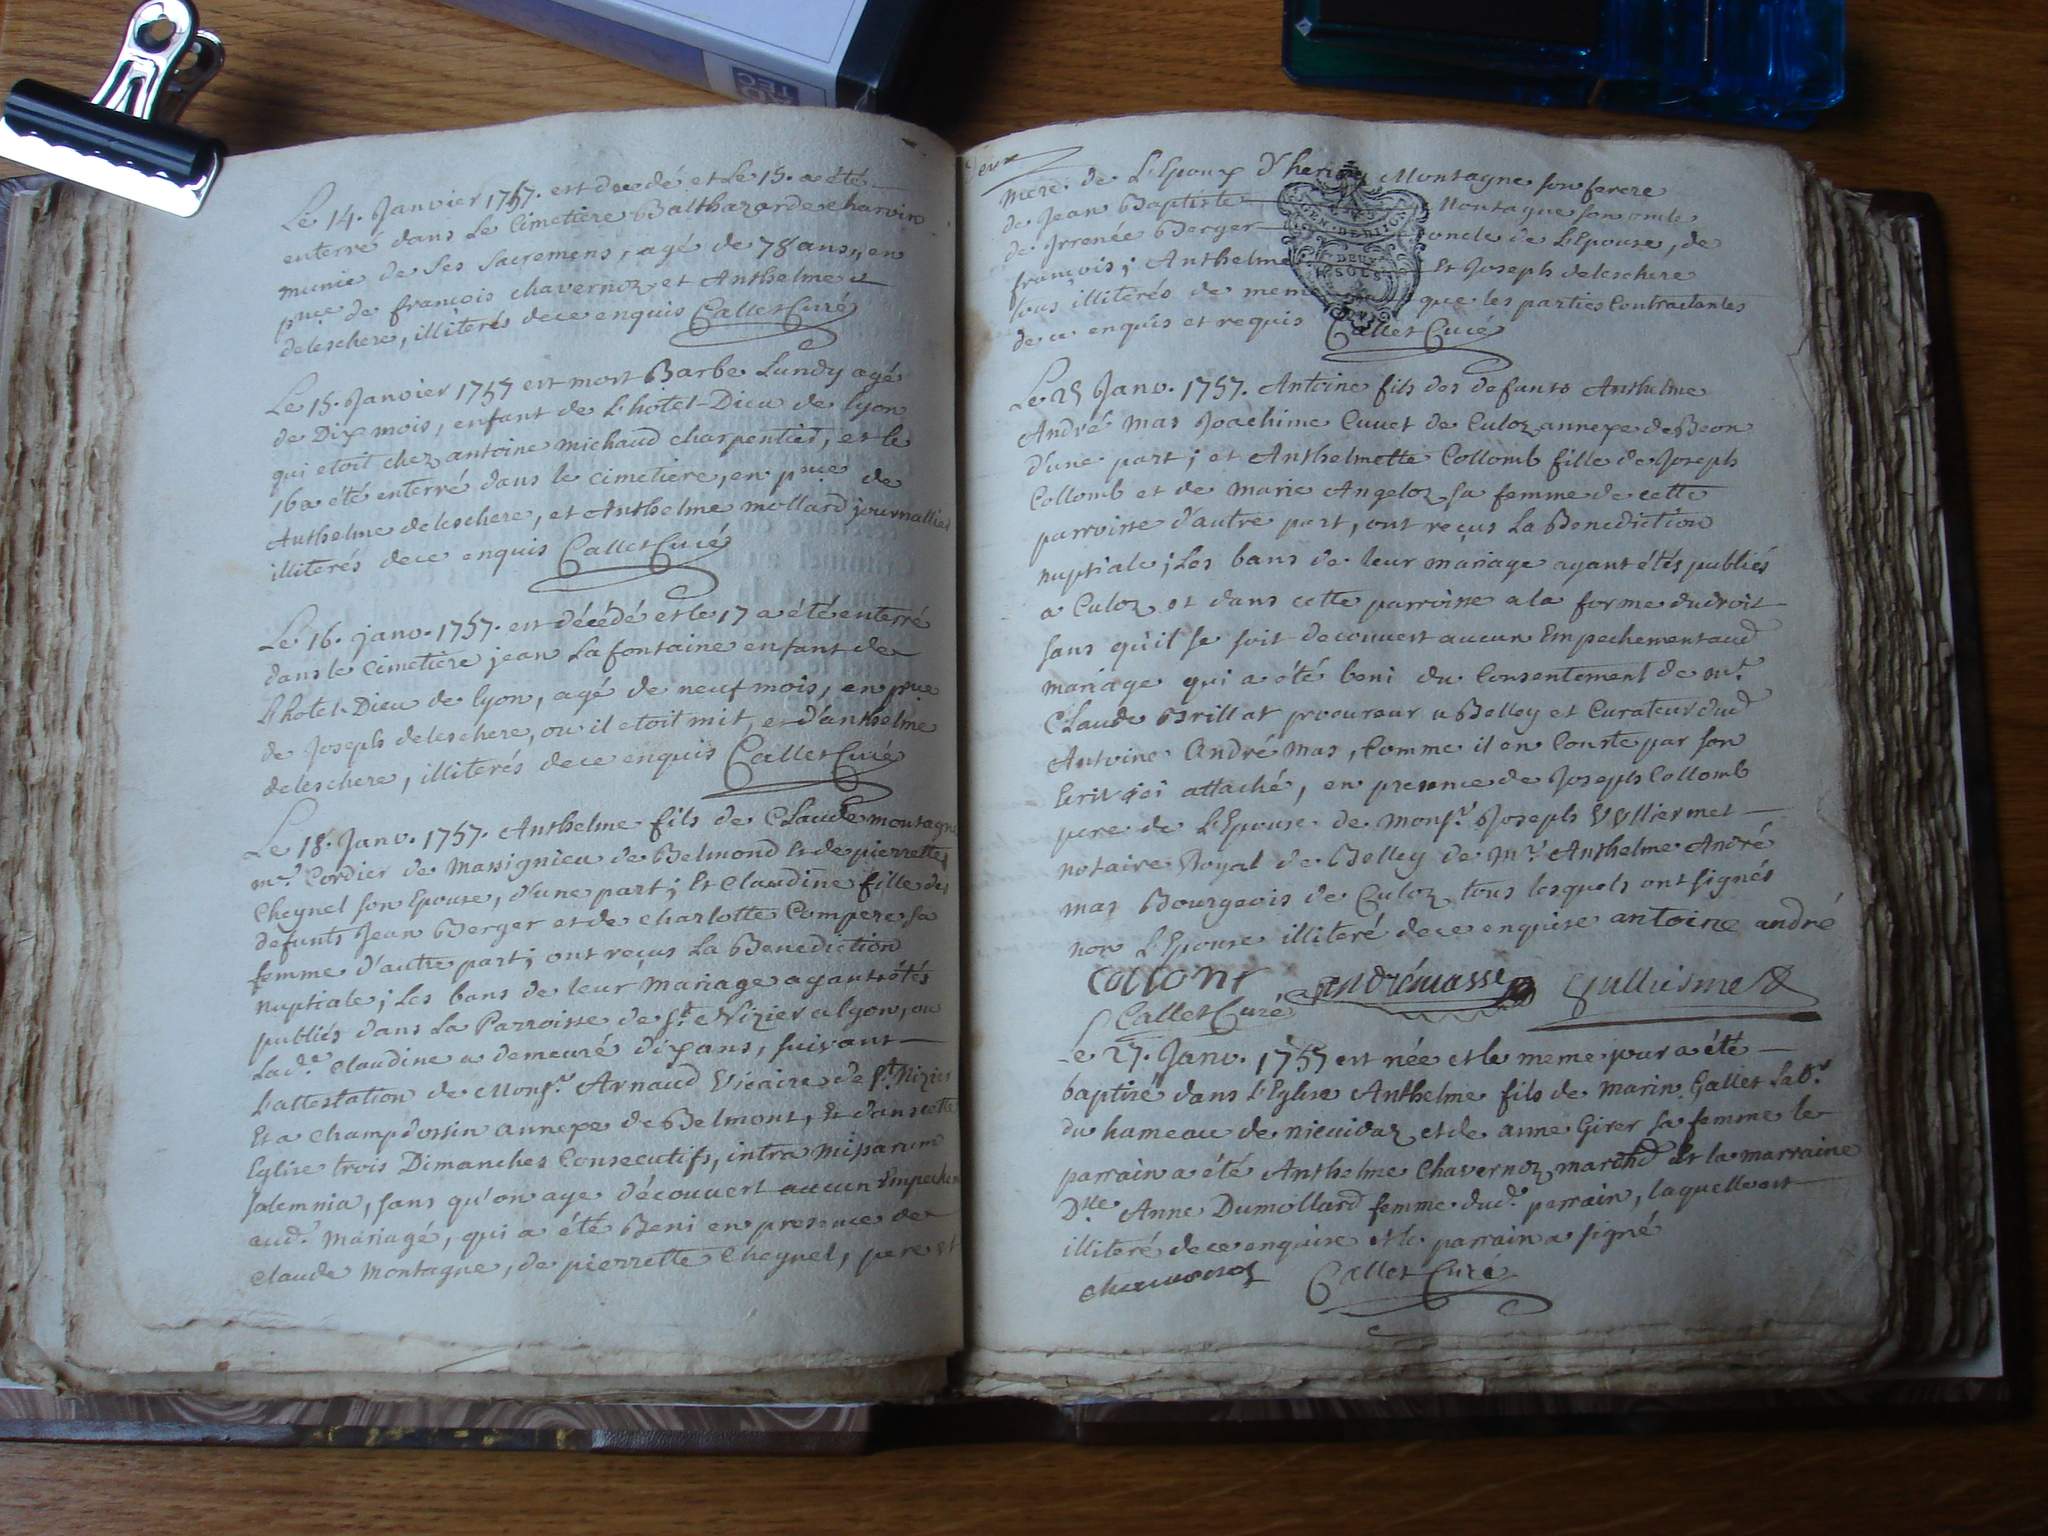 Le 14. Janvier 1757. est decedé et Le 15. a été
enterré dans Le Cimetiere Balthazarde charvin
munie de Ses Sacremens, agé de 78 ans, en
pnce de françois chavernoz et Anthelme
deleschere, illiterés de ce enquis Callet Curé
Le 15. Janvier 1757 est mort Barbe Lundy agé
de Dix mois, enfant de L'hotel-Dieu de lyon
qui etoit chez antoine michaud charpentier, et le
16 a été enterré dans le cimetiere, en pnce de
Anthelme deleschere, et Anthelme mollard journallier
illiterés de ce enquis Callet Curé
Le 16. janv. 1757. est décédé et le 17 a été enterré
dans le cimetiere jean Lafontaine enfant de
L'hotel-Dieu de lyon, agé de neuf mois, en pnce
de Joseph deleschere, ou il etoit mit, et d'anthelme
deleschere, illiterés de ce enquis Callet Curé
Le 18. Janv. 1757. Anthelme fils de Claude montagne
mre. Cordier de Massignieu de Belmond Et de pierrette
Cheynel son Epouse, d'une part; Et Claudine fille des
defunts Jean Berger et de Charlotte Compere sa
femme d'autre part; ont reçus La Benediction
nuptiale; Les bans de leur mariage ayant étés
publiés dans La Parroisse de st. Nizier a lyon, ou
Lade. Claudine a demeuré dix ans, suivant
L'attestation de Monsr. Arnaud Vicaire de st. Nizier
Et a Champdossin annexe de Belmont, Et dans cette
Eglise trois Dimanches Consecutifs, intra missarum
solemnia, sans qu'on aye découvert aucun Empechem
aud. Mariagé, qui a été Beni en presence de
Claude Montagne, de pierrette Cheynel, pere et
deux
mere de L'Epoux Montagne son frere
de Jean Baptiste Montagne son oncle
de Irrenée Berger oncle de L'Epouse, de
françois; Anthelme Et Joseph deleschere
tous illiterés de meme que les parties Contractantes
de ce enquis et requis Callet Curé
GEN. DE DIJON
DEUX
SOLS
Le 25 Janv. 1757. Antoine fils des defunts Anthelme
André mas Joachime Cuuet de Culoz annexe de Beon
d'une part; et Anthelmette Collomb fille de Joseph
Collomb et de Marie Angeloz sa femme de cette
parroisse d'autre part, ont reçus La Benediction
nuptiale; Les bans de leur mariage ayant étés publiés
a Culoz et dans cette parroisse a la forme du droit
sans qu'il se soit decouvert aucun Empechement aud
mariage qui a été beni du Consentement de mr.
Claude Brillat procureur a Belley et Curateur dud
Antoine André Mas, Comme il en Conste par son
Ecrit ici attaché, en presence de Joseph Collomb
pere de L'Epouse de Monsr. Joseph Vulliermet
notaire Royal de Belley de mr. Anthelme André
mas Bourgeois de Culoz tous lesquels ont signés
non L'Epouse illiteré de ce enquise antoine andré
collomb andrémasse Vulliermet
Callet Curé
Le 27. Janv. 1757 est née et le meme jour a été
baptisé dans L'Eglise Anthelme fils de Marin Gallet Labr.
du hameau de et de anne Girer sa femme le
parrain a été Anthelme Chavernoz marchd Et la marraine
Dlle Anne Dumollard femme dud. parrain, laquelle est
illiteré de ce enquise et le parrain a signé
chavernoz Callet Curé